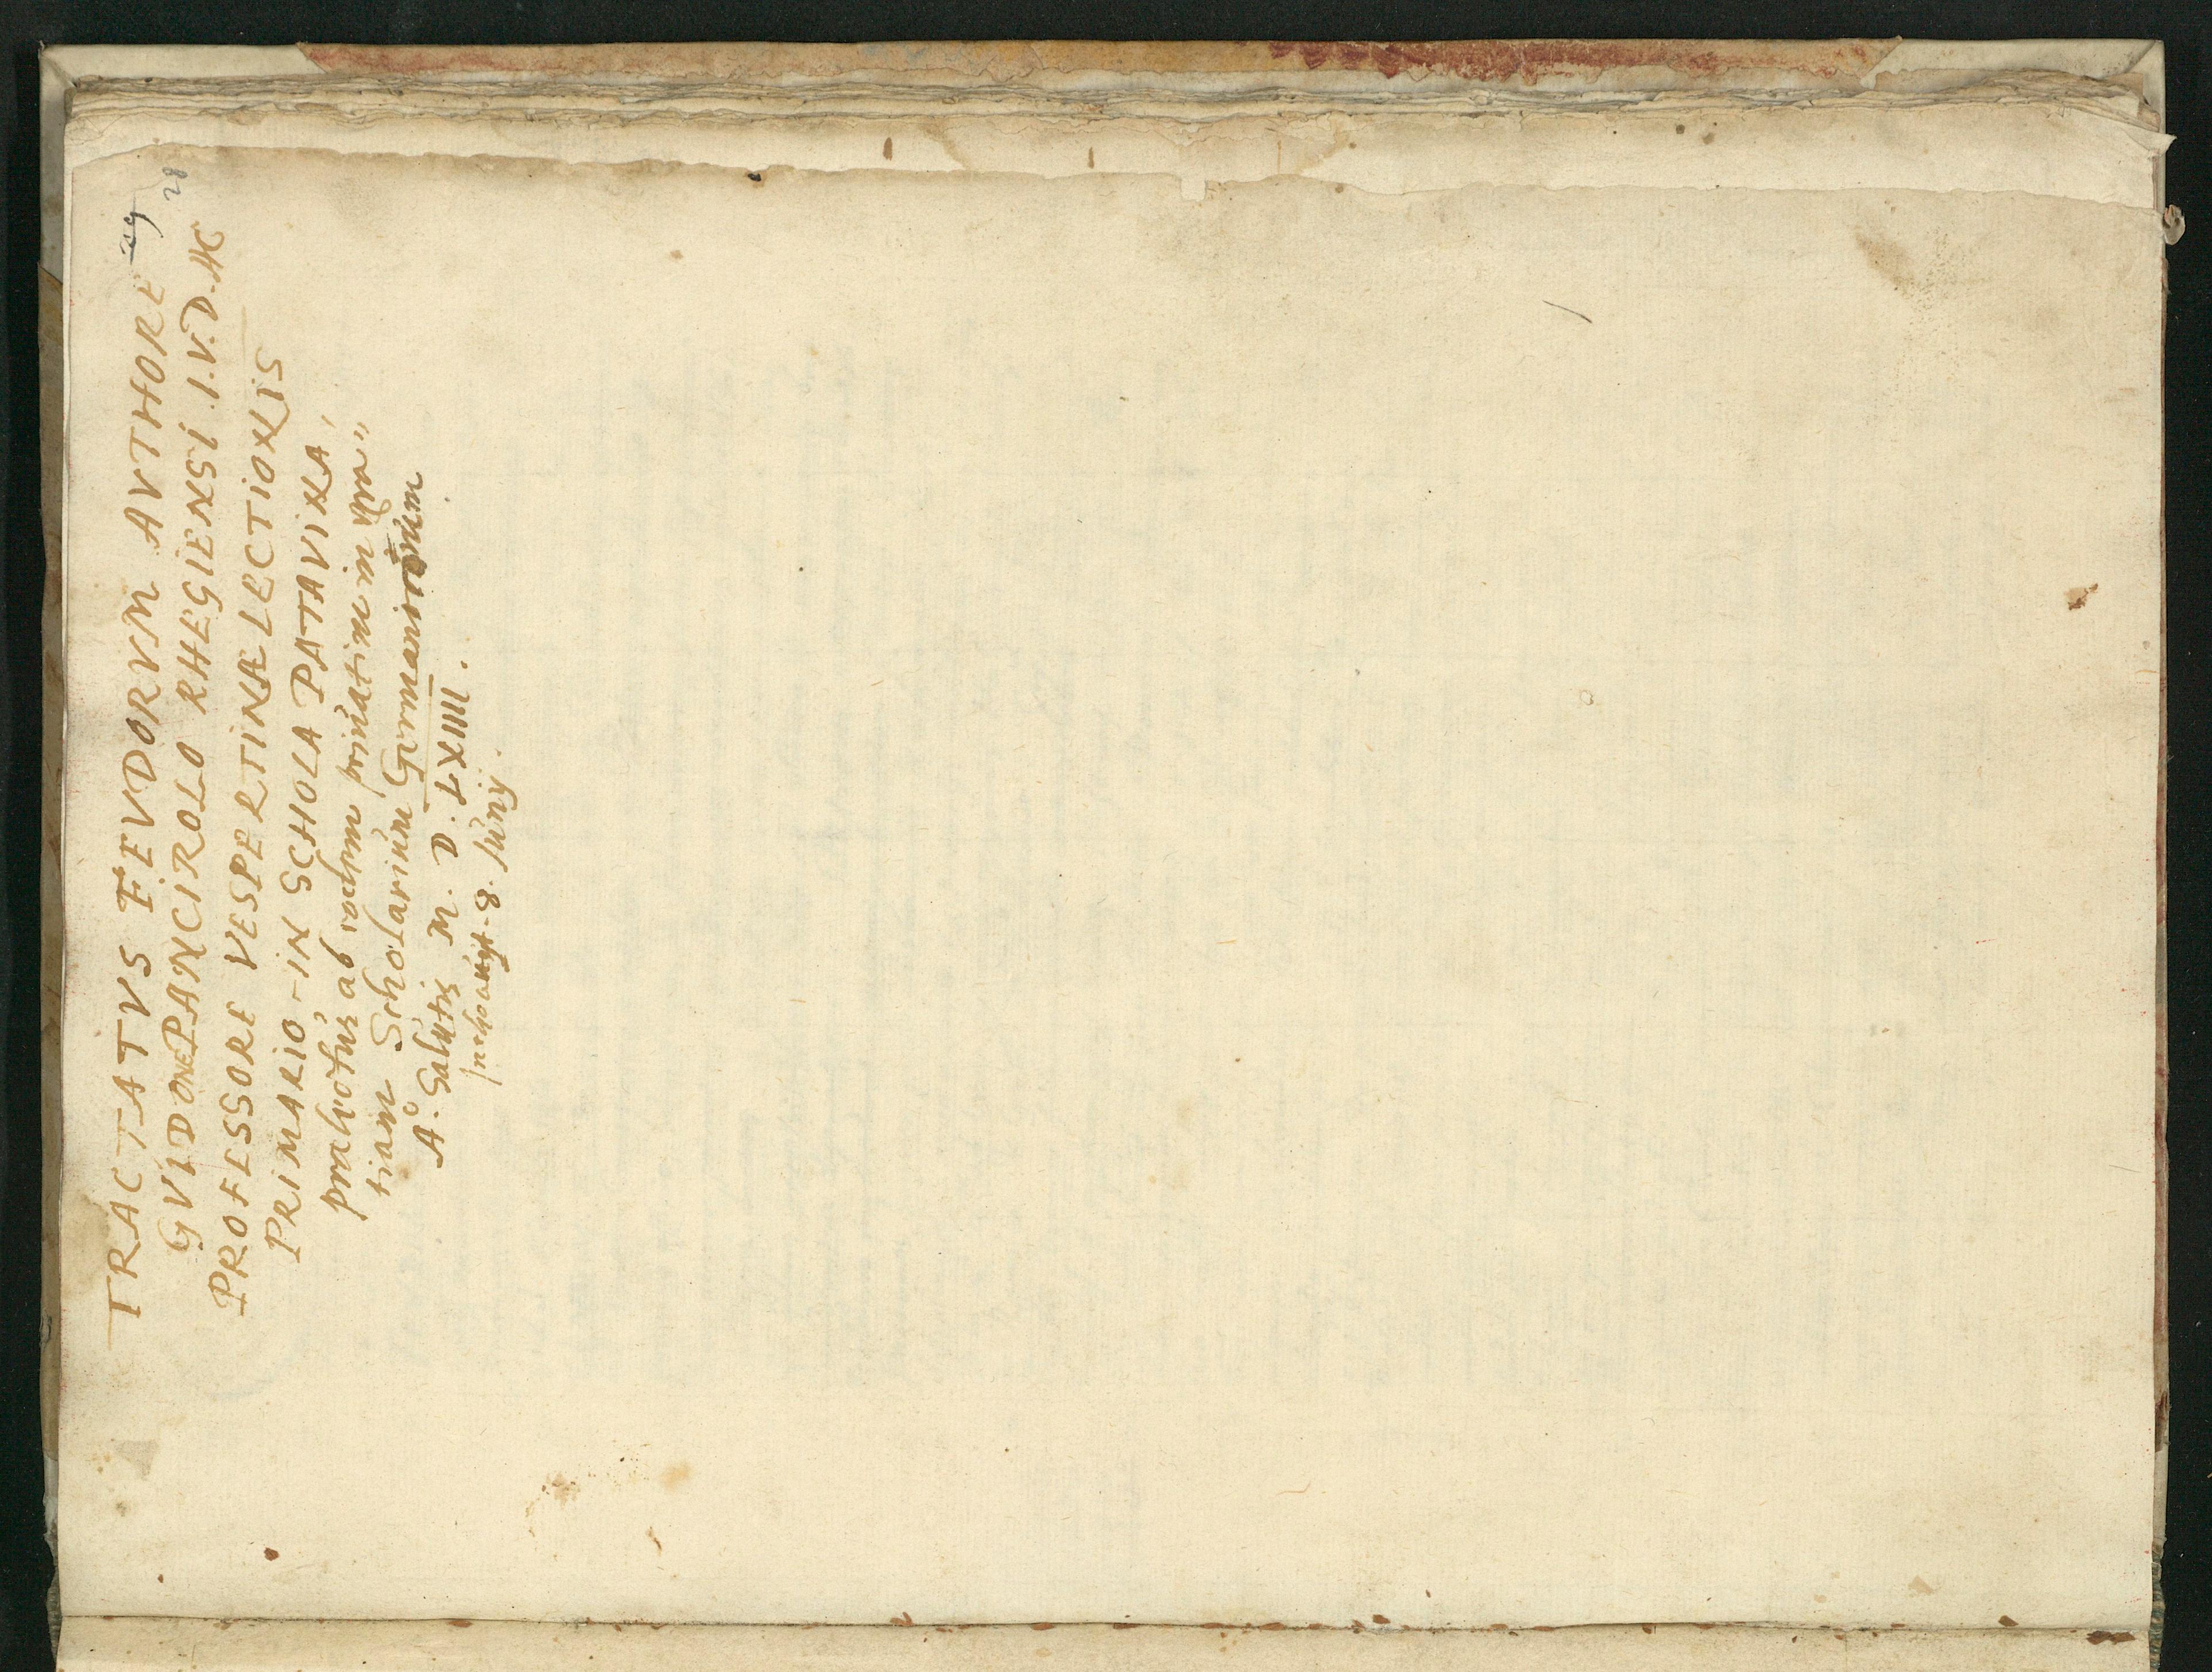 TRACTATVS FEVDORVM AVTHORE
GVIDONE PANCIROLO RHEGIENSI .I.V.D. AC
PROFESSORE VESPERTINÆ LECTIONIS
PRIMARIO, IN SCHOLA PATAVINA,
prælectus ab eodem priuatim in gra„
tiam Scholarium Germanorum
A°. Salutis M. D. LXIIII.
Inchoauit 8. Junij.
28